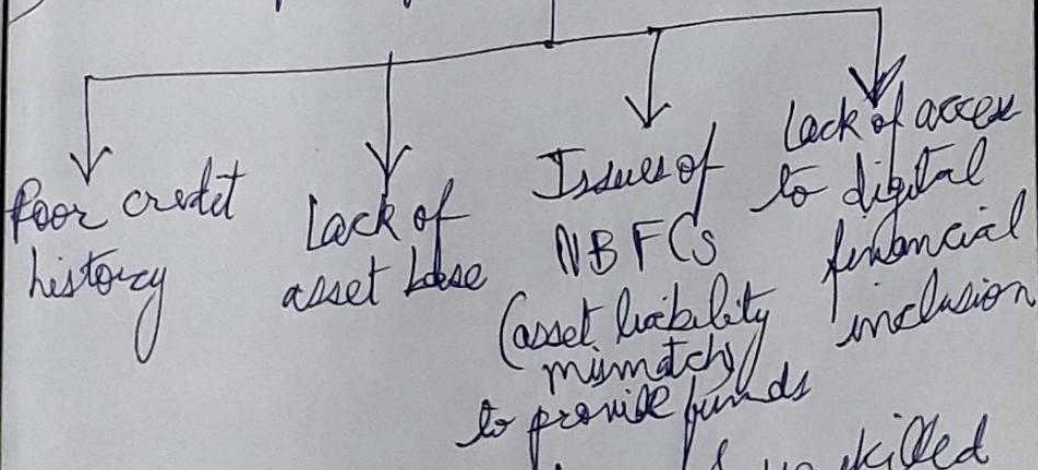 Poor credit
history
Lack of
asset base
Issues of
NBFCs
(asset liability
mismatch)
to provide funds
Lack of access
to digital
financial
inclusion
skilled